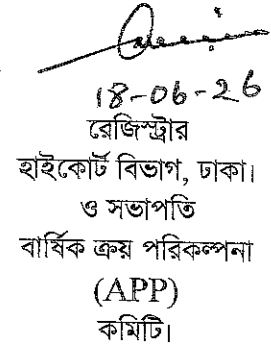 18-06-26
রেজিস্ট্রার
হাইকোর্ট বিভাগ, ঢাকা।
ও সভাপতি
বার্ষিক ক্রয় পরিকল্পনা
(APP)
কমিটি।